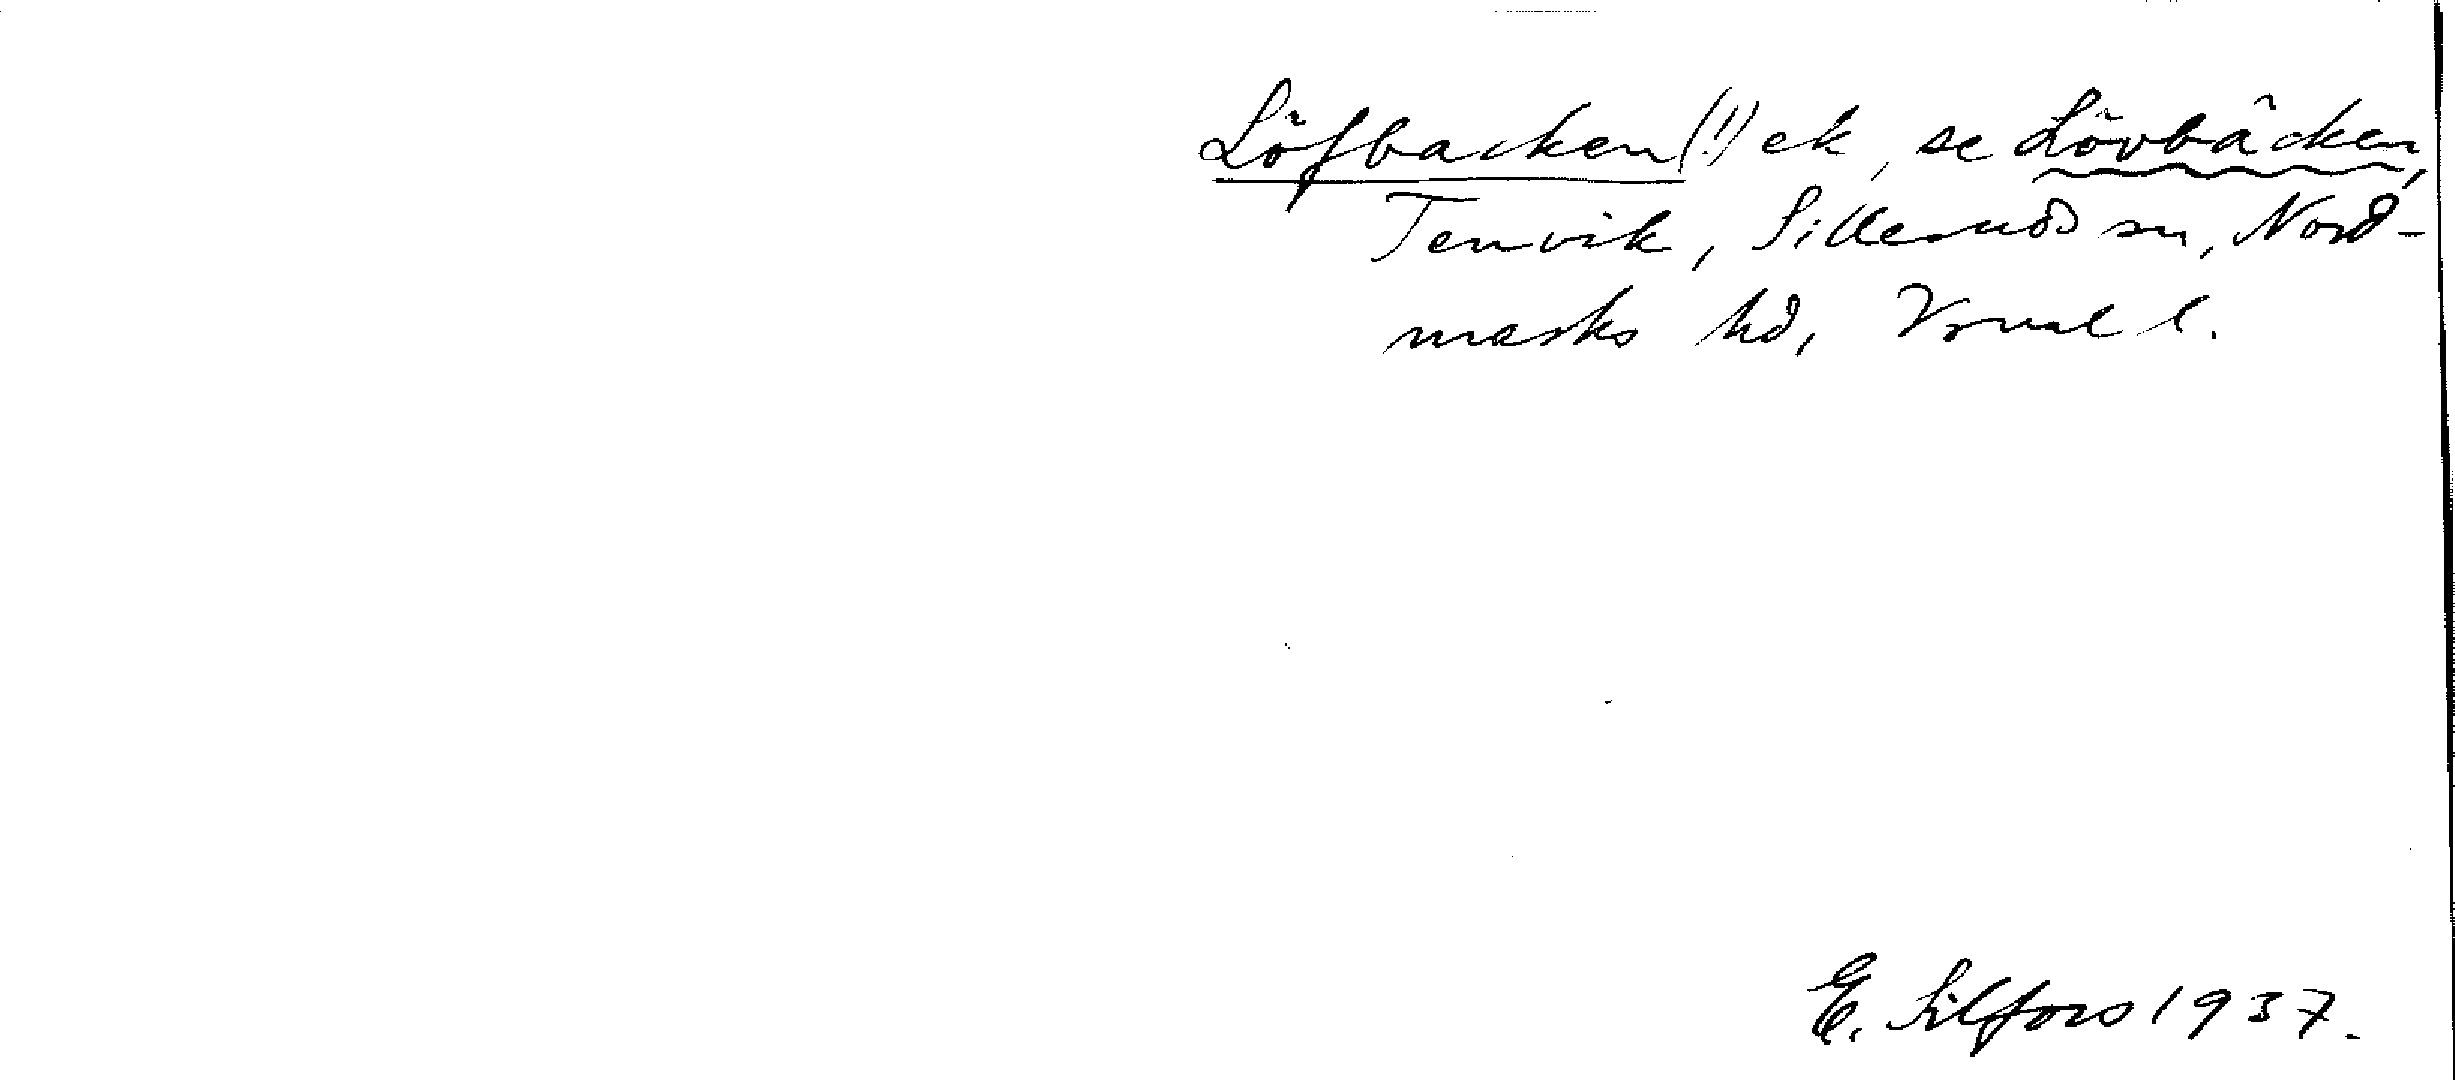 Löfbacken (!) ek, se Lövbäcken,
Tenvik, Silleruds sn, Nord-
marks hd, Vrml l.
E. Silfors 1937.